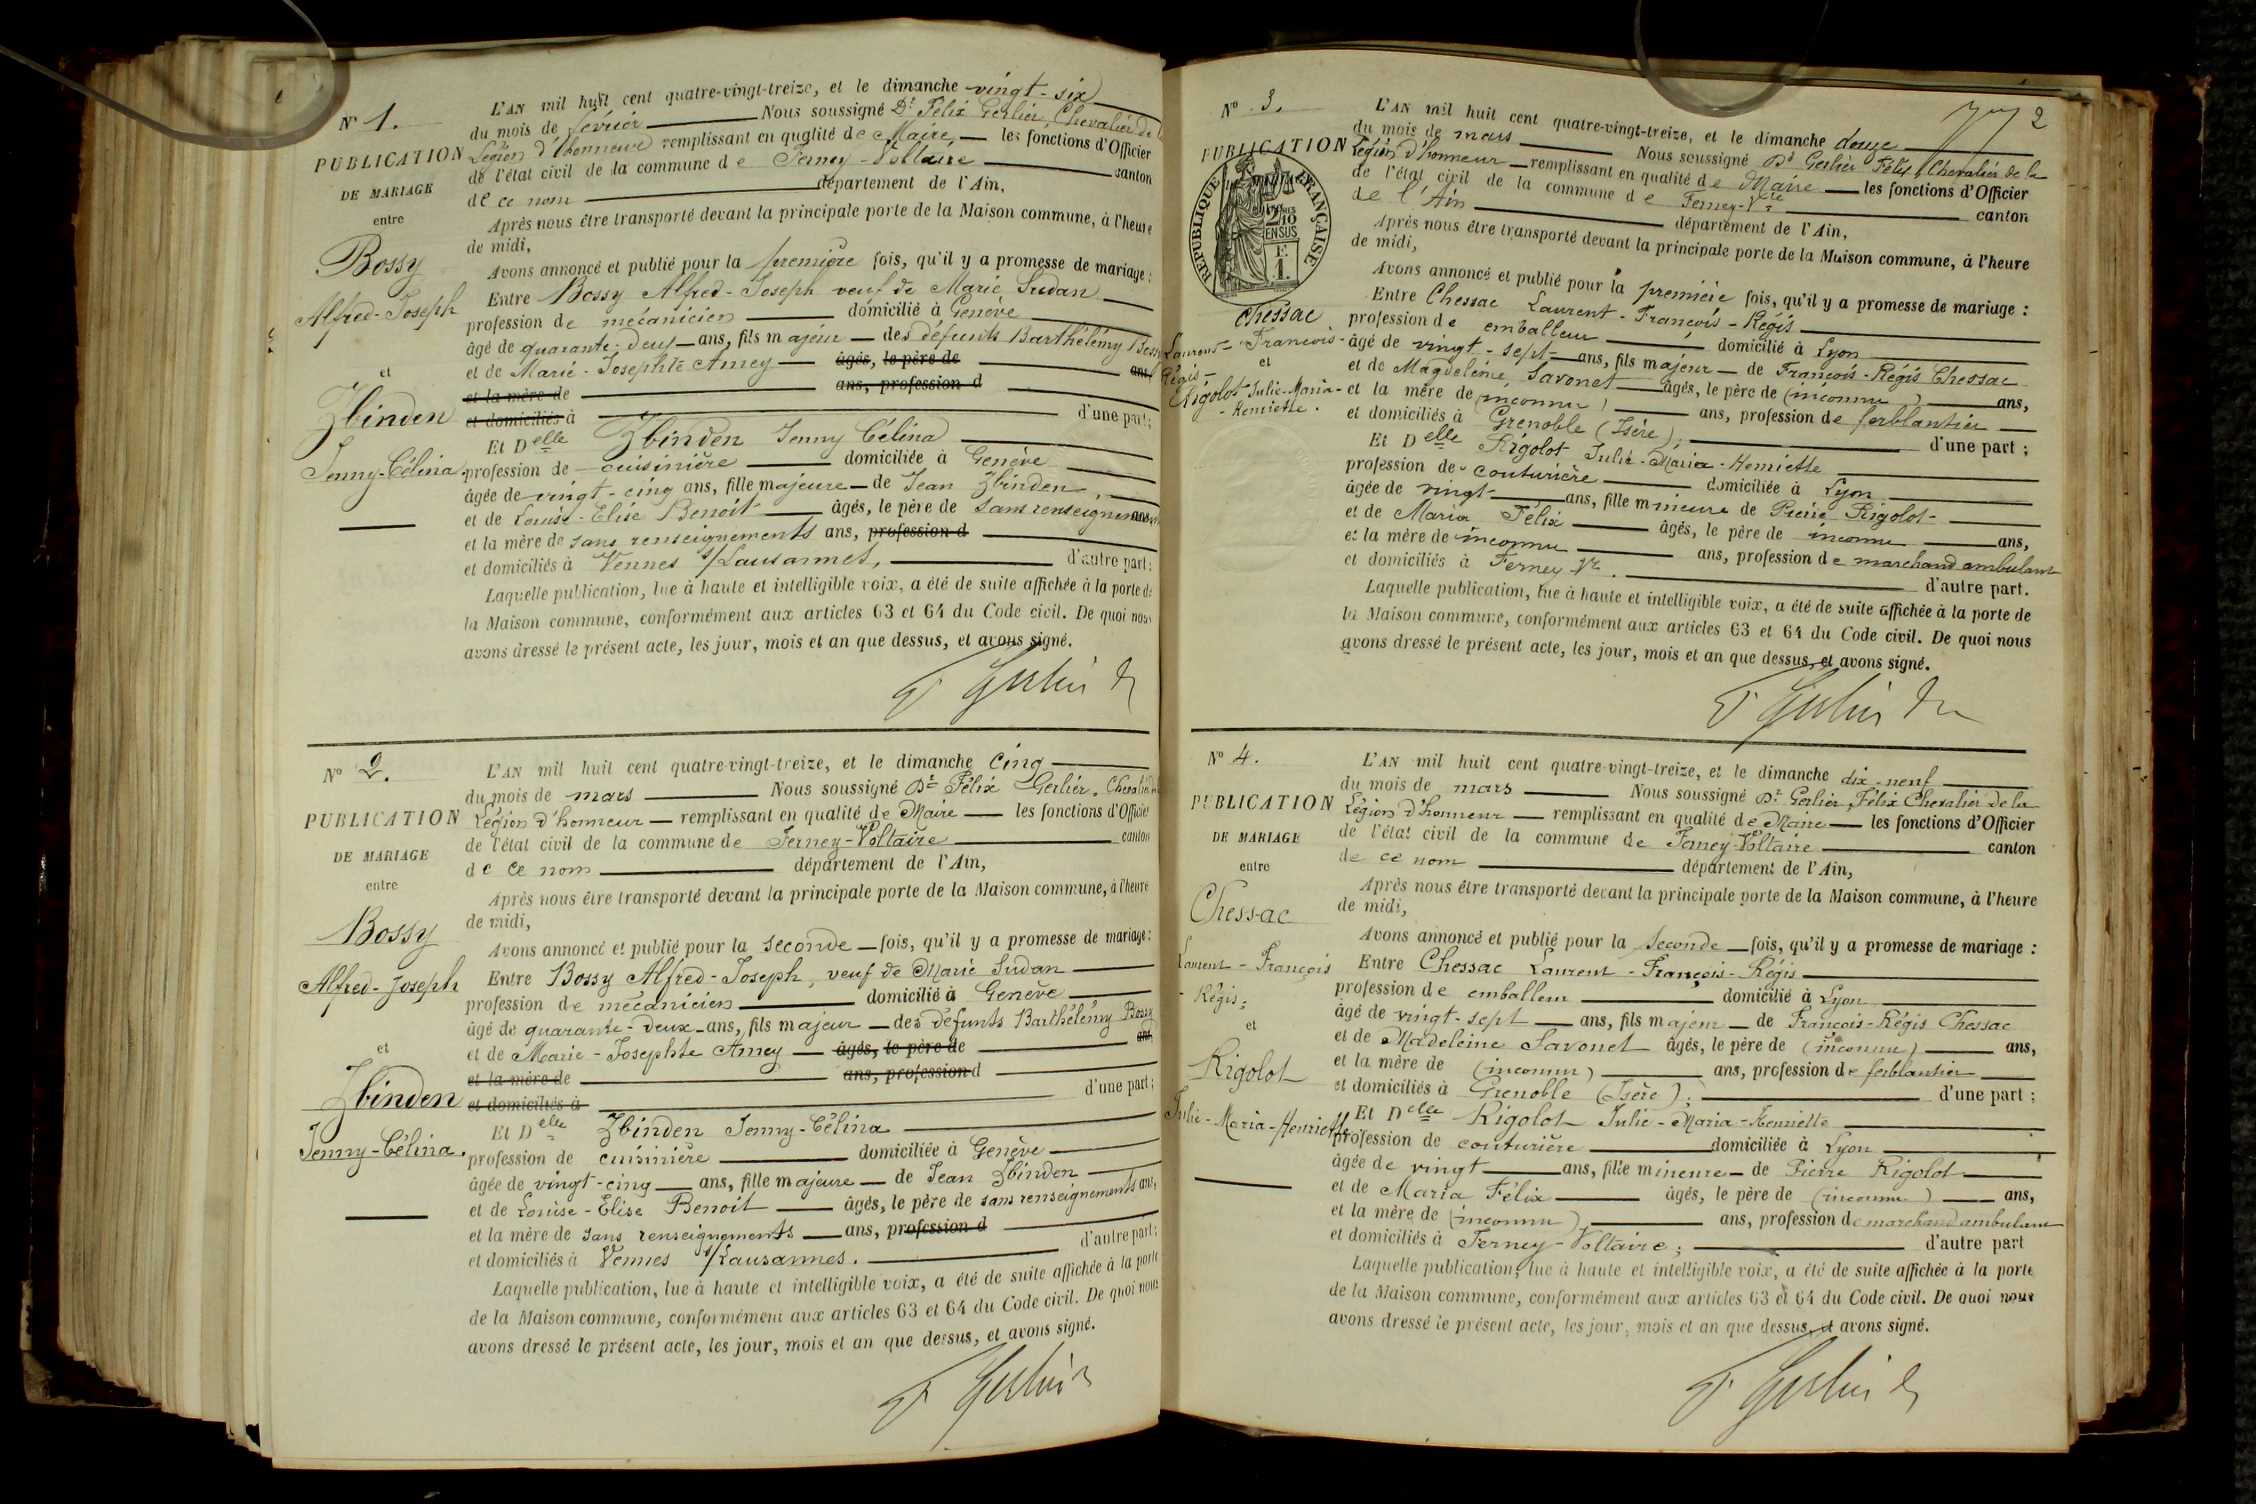 N° 1.
PUBLICATION
DE MARIAGE
entre
Bossy
Alfred-Joseph
et
Zbinden
Jenny-Célina.
L'AN mil huit cent quatre-vingt-treize, et le dimanche vingt-six
du mois de février Nous soussigné Dr Félix Gerlier, Chevalier de la
Légion d'honneur remplissant en qualité de Maire les fonctions d'Officier
de l'état civil de la commune de Ferney-Voltaire canton
de ce nom département de l'Ain,
Après nous être transporté devant la principale porte de la Maison commune, à l'heure
de midi,
Avons annoncé et publié pour la première fois, qu'il y a promesse de mariage :
Entre Bossy Alfred-Joseph veuf de Marie Sudan
profession de mécanicien domicilié à Genève
âgé de quarante-deux ans, fils majeur des défunts Barthélémy Bossy
et de Marie-Josephte Amey âgés, le père de ans,
et la mère de ans, profession d
et domiciliés à d'une part;
Et Delle Zbinden Jenny Célina
profession de cuisinière domiciliée à Genève
âgée de vingt-cinq ans, fille majeure de Jean Zbinden,
et de Louise-Elise Benoit âgés, le père de sans renseignements ans,
et la mère de sans renseignements ans, profession d
et domiciliés à Vennes s/Lausannes, d'autre part;
Laquelle publication, lue à haute et intelligible voix, a été de suite affichée à la porte de
la Maison commune, conformément aux articles 63 et 64 du Code civil. De quoi nous
avons dressé le présent acte, les jour, mois et an que dessus, et avons signé.
F Gerlier Dr
N° 2.
PUBLICATION
DE MARIAGE
entre
Bossy
Alfred-Joseph
et
Zbinden
Jenny-Célina.
L'AN mil huit cent quatre-vingt-treize, et le dimanche cinq
du mois de mars Nous soussigné Dr Félix Gerlier, Chevalier de la
Légion d'honneur remplissant en qualité de Maire les fonctions d'Officier
de l'état civil de la commune de Ferney-Voltaire canton
de ce nom département de l'Ain,
Après nous être transporté devant la principale porte de la Maison commune, à l'heure
de midi,
Avons annoncé et publié pour la seconde fois, qu'il y a promesse de mariage:
Entre Bossy Alfred-Joseph, veuf de Marie Sudan
profession de mécanicien domicilié à Genève
âgé de quarante-deux ans, fils majeur des défunts Barthélémy Bossy
et de Marie-Josephte Amey âgés, le père de ans,
et la mère de ans, profession d
et domiciliés à d'une part;
Et Delle Zbinden Jenny-Célina
profession de cuisinière domiciliée à Genève
âgée de vingt-cinq ans, fille majeure de Jean Zbinden
et de Louise-Elise Benoit âgés, le père de sans renseignements ans,
et la mère de sans renseignements ans, profession d
et domiciliés à Vennes s/Lausannes. d'autre part;
Laquelle publication, lue à haute et intelligible voix, a été de suite affichée à la porte
de la Maison commune, conformément aux articles 63 et 64 du Code civil. De quoi nous
avons dressé le présent acte, les jour, mois et an que dessus, et avons signé.
F Gerlier Dr
2
N° 3.
PUBLICATION
REPUBLIQUE FRANÇAISE
2/10 EN SUS
E.
1.
Chessac
Laurent-François-
Régis-
et
Rigolot Julie-Maria-
-Henriette.
L'AN mil huit cent quatre-vingt-treize, et le dimanche douze
du mois de mars Nous soussigné Dr Gerlier Félix Chevalier de la
Légion d'honneur remplissant en qualité de Maire les fonctions d'Officier
de l'état civil de la commune de Ferney-Vre canton
de l'Ain département de l'Ain,
Après nous être transporté devant la principale porte de la Maison commune, à l'heure
de midi,
Avons annoncé et publié pour la première fois, qu'il y a promesse de mariage :
Entre Chessac Laurent-François-Régis
profession de emballeur domicilié à Lyon
âgé de vingt-sept ans, fils majeur de François-Régis Chessac
et de Magdeleine Savonet âgés, le père de (inconnu) ans,
et la mère de (inconnu) ans, profession de ferblantier
et domiciliés à Grenoble (Isère); d'une part;
Et Delle Rigolot Julie-Maria-Henriette
profession de couturière domiciliée à Lyon
âgée de vingt ans, fille mineure de Pierre Rigolot
et de Maria Félix âgés, le père de inconnu ans,
et la mère de inconnu ans, profession de marchand ambulant
et domiciliés à Ferney-Vre. d'autre part.
Laquelle publication, lue à haute et intelligible voix, a été de suite affichée à la porte de
la Maison commune, conformément aux articles 63 et 64 du Code civil. De quoi nous
avons dressé le présent acte, les jour, mois et an que dessus, et avons signé.
F Gerlier Dr
N° 4.
PUBLICATION
DE MARIAGE
entre
Chessac
Laurent-François
-Régis;
et
Rigolot
Julie-Maria-Henriette
L'AN mil huit cent quatre-vingt-treize, et le dimanche dix-neuf
du mois de mars Nous soussigné Dr Gerlier, Félix Chevalier de la
Légion d'honneur remplissant en qualité de Maire les fonctions d'Officier
de l'état civil de la commune de Ferney-Voltaire canton
de ce nom département de l'Ain,
Après nous être transporté devant la principale porte de la Maison commune, à l'heure
de midi,
Avons annoncé et publié pour la seconde fois, qu'il y a promesse de mariage :
Entre Chessac Laurent-François-Régis
profession de emballeur domicilié à Lyon
âgé de vingt-sept ans, fils majeur de François-Régis Chessac
et de Madeleine Savonet âgés, le père de (inconnu) ans,
et la mère de (inconnu) ans, profession de ferblantier
et domiciliés à Grenoble (Isère); d'une part;
Et Delle Rigolot Julie-Maria-Henriette
profession de couturière domiciliée à Lyon
âgée de vingt ans, fille mineure de Pierre Rigolot
et de Maria Félix âgés, le père de (inconnu) ans,
et la mère de (inconnu) ans, profession de marchand ambulant
et domiciliés à Ferney-Voltaire; d'autre part
Laquelle publication, lue à haute et intelligible voix, a été de suite affichée à la porte
de la Maison commune, conformément aux articles 63 et 64 du Code civil. De quoi nous
avons dressé le présent acte, les jour, mois et an que dessus, et avons signé.
F Gerlier Dr